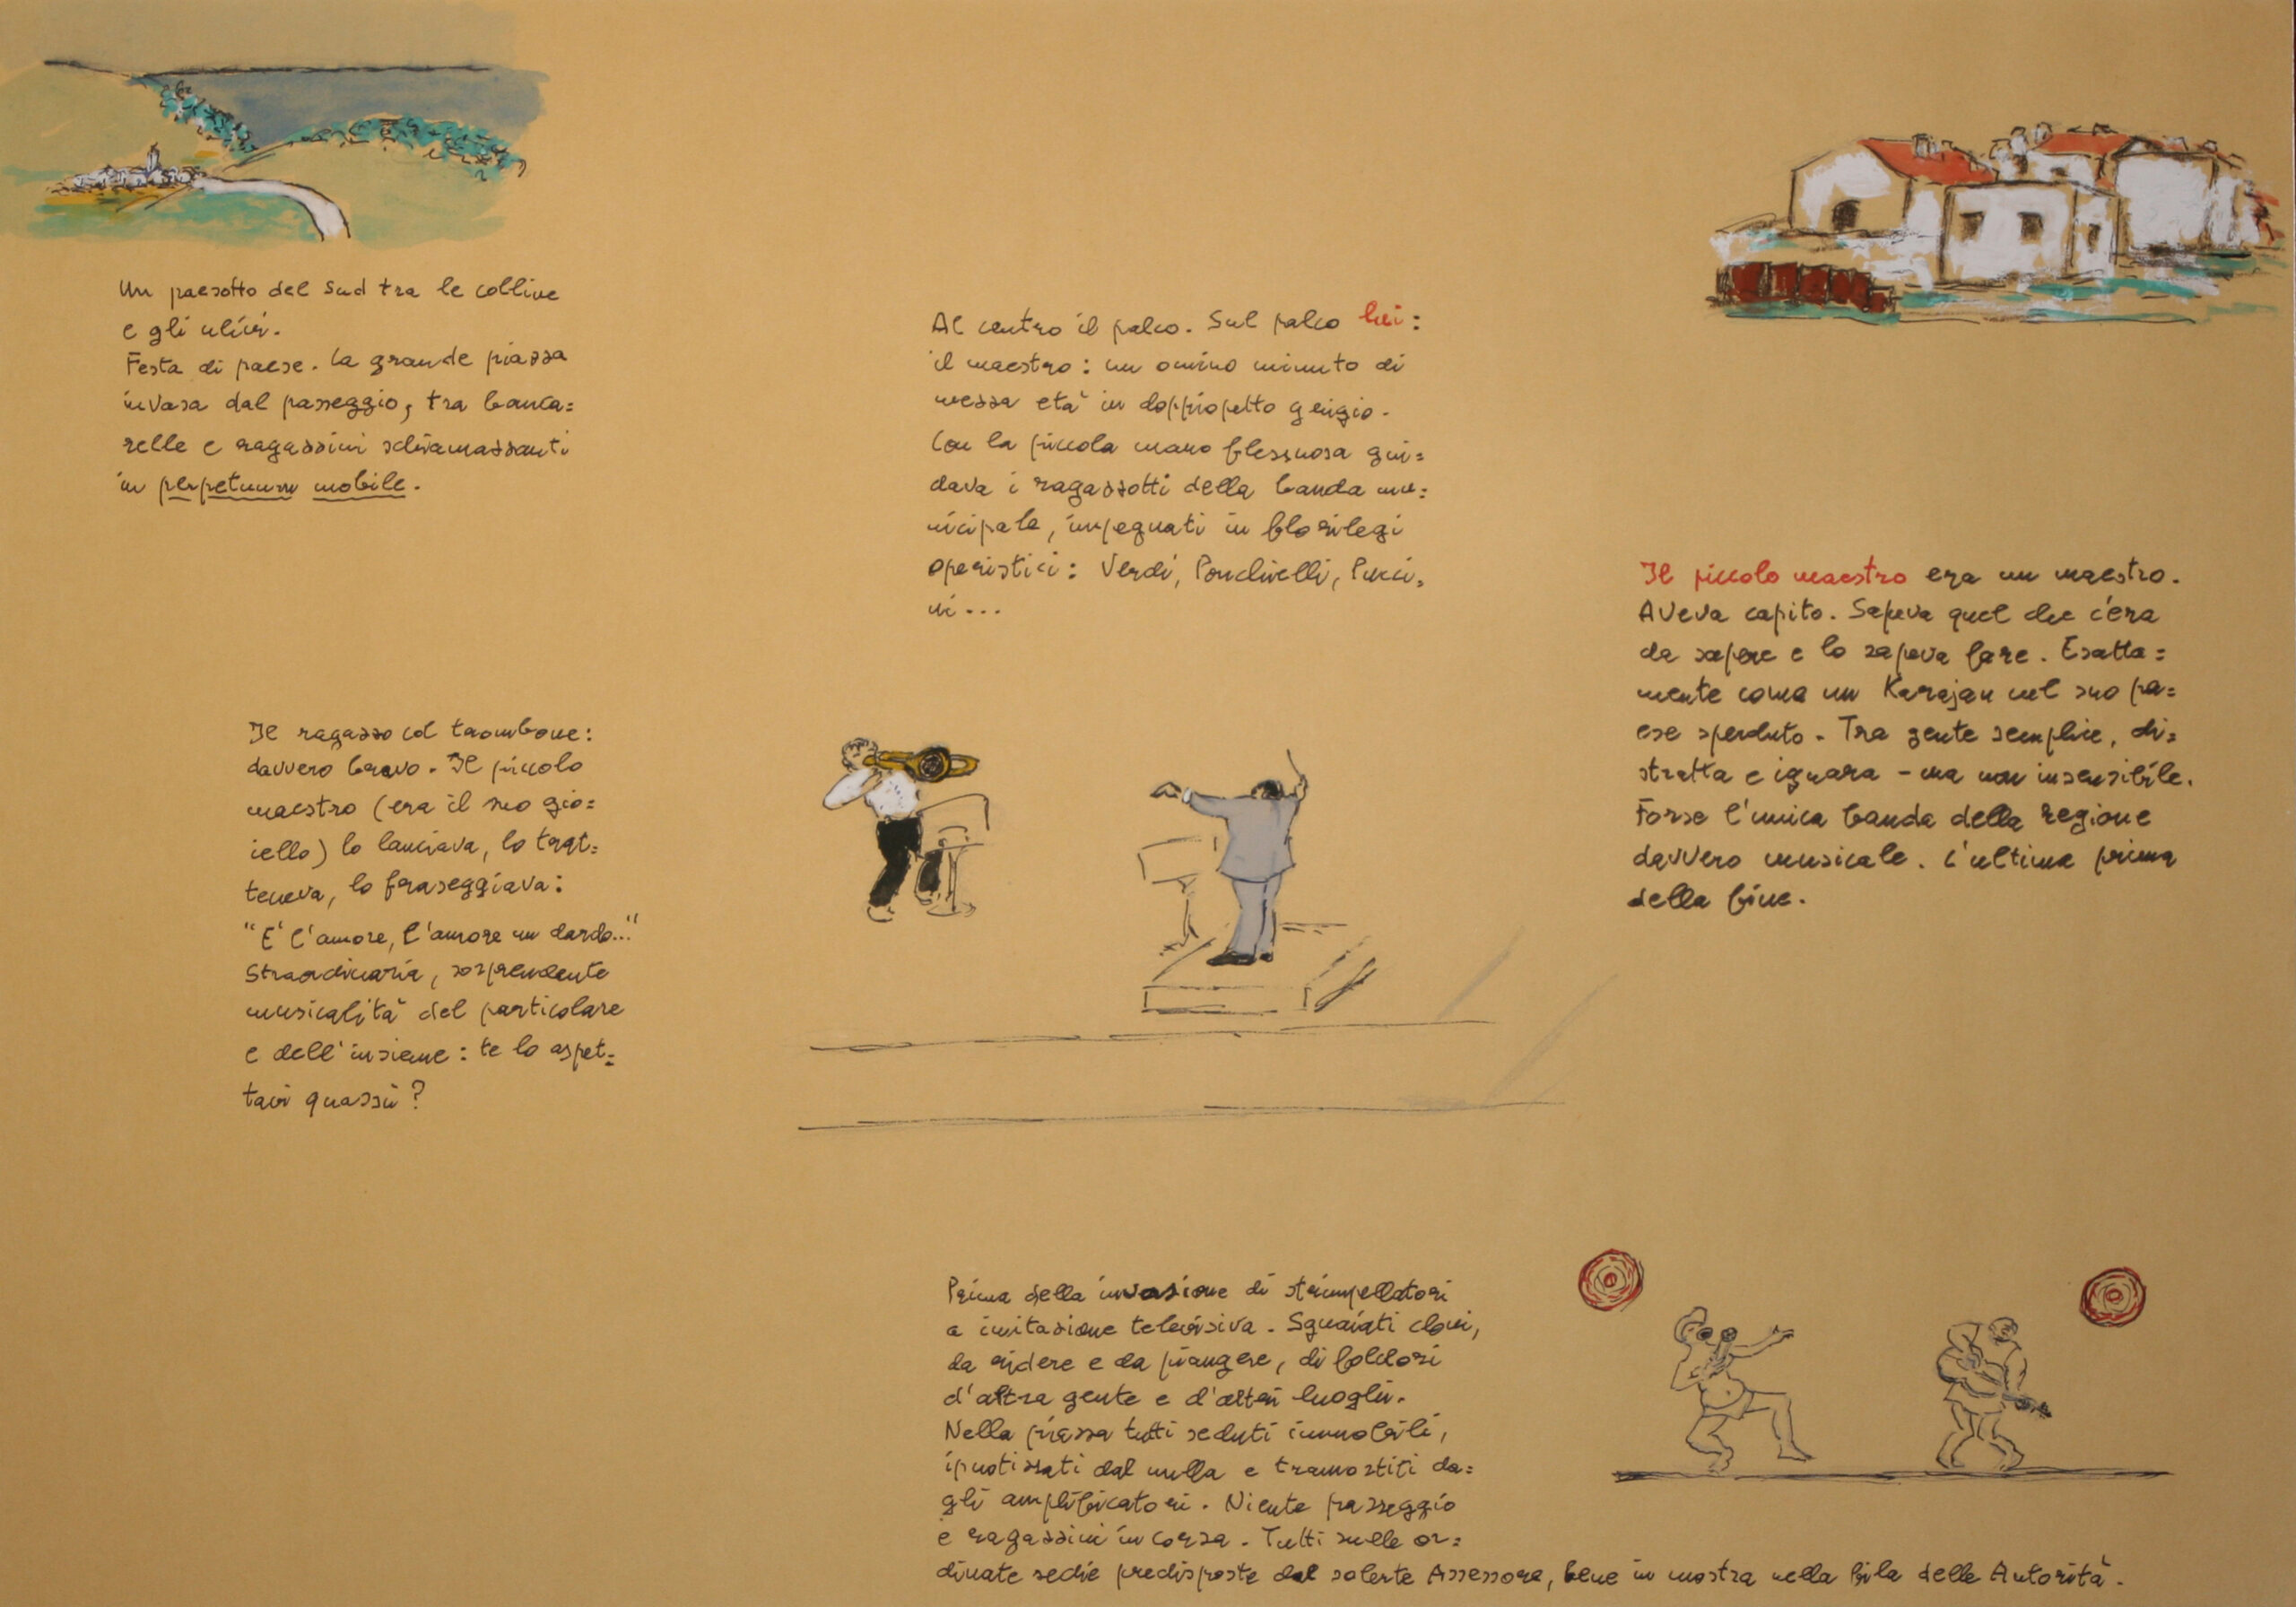 Un paesotto del Sud tra le colline
e gli ulivi.
Festa di paese. La grande piazza
invasa dal passeggio, tra banca=
relle e ragazzini schiamazzanti
in perpetuum mobile.
Al centro il palco. Sul palco lui:
il maestro: un omino minuto di
mezza età in doppiopetto grigio.
Con la piccola mano flessuosa gui=
dava i ragazzotti della banda mu=
nicipale, impegnati in florilegi
operistici: Verdi, Ponchielli, Pucci=
ni...
Il ragazzo col trombone:
davvero bravo. Il piccolo
maestro (era il suo gio=
iello) lo lanciava, lo trat=
teneva, lo fraseggiava:
"E' l'amore, l'amore un dardo..."
Straordinaria, sorprendente
musicalità del particolare
e dell'insieme: te lo aspet=
tavi quassù?
Il piccolo maestro era un maestro.
Aveva capito. Sapeva quel che c'era
da sapere e lo sapeva fare. Esatta=
mente come un Karajan nel suo pa=
ese sperduto. Tra gente semplice, di=
stratta e ignara - ma non insensibile.
Forse l'unica banda della regione
davvero musicale. L'ultima prima
della fine.
Prima della invasione di strimpellatori
a imitazione televisiva. Sguaiati cloni,
da ridere e da piangere, di folclori
d'altra gente e d'altri luoghi.
Nella piazza tutti seduti immobili,
ipnotizzati dal nulla e tramortiti da=
gli amplificatori. Niente passeggio
e ragazzini in corsa. Tutti sulle or=
dinate sedie predisposte dal solerte Assessore, bene in mostra nella fila delle Autorità.